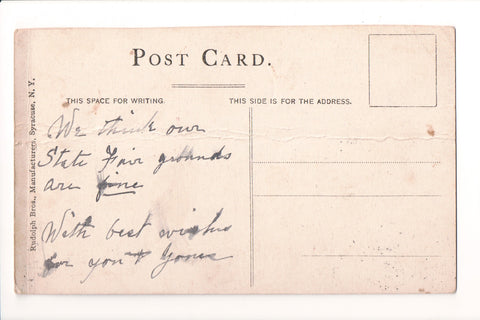 POST CARD.
THIS SPACE FOR WRITING.
THIS SIDE IS FOR THE ADDRESS.
Rudolph Bros., Manufacturers, Syracuse, N. Y.
We think our
State Fair grounds
are fine
With best wishes
for you & Yours